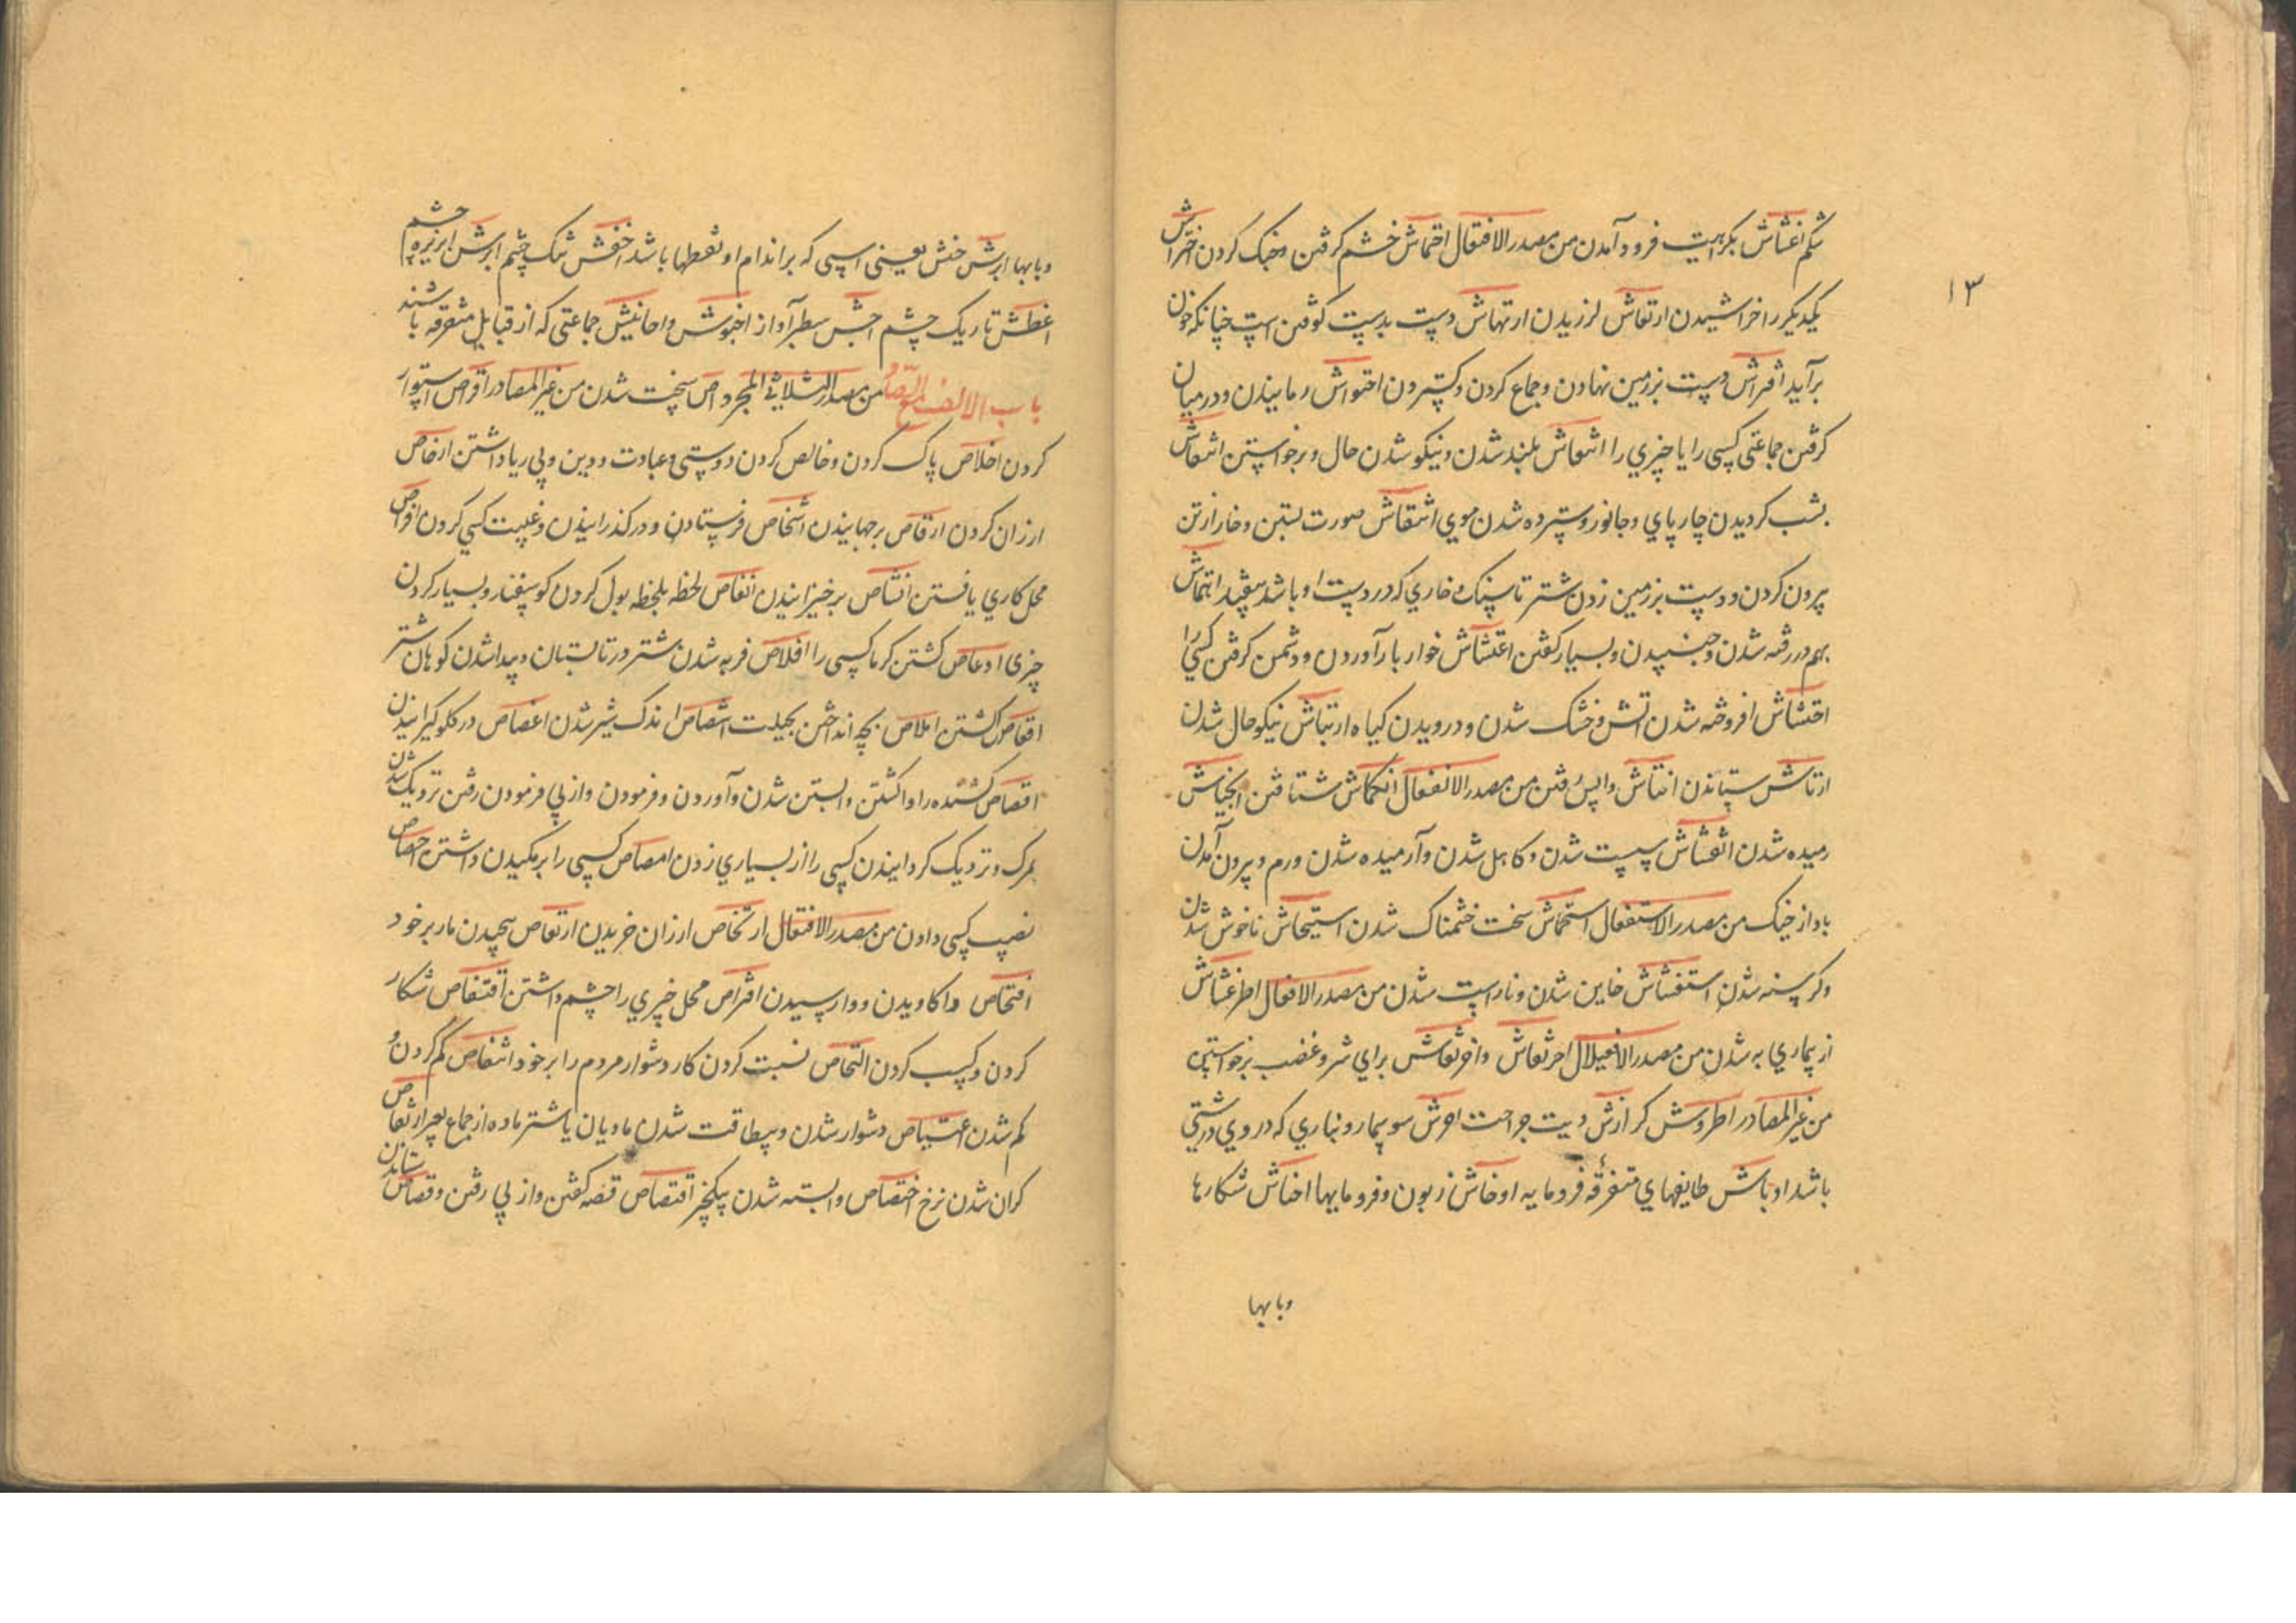 شکم اغشاش بکراهیت فرود آمدن من مصدر الافتعال اقماش خشم گرفتن و جنک کردن اخراش
۱۳
یکدیکر را خراشیدن ارتعاش لرزیدن ارتهاش دست بدست کوفتن است چنانکه خون
برآید افتراش دست بزمین نهادن و جماع کردن و کستردن احتواش رمانیدن و در میان
کرفتن جماعتی کسی را یا چیزی را انتعاش بلند شدن و نیکو شدن حال و برخواستن
بشب کردیدن چارپای و جانور و سترده شدن موی انتقاش صورت بستن و خار از تن
بیرون کردن و دست بزمین زدن شتر تا سنک و خاری که در دست او باشد بیفتد
بهم در رفته شدن و جنبیدن و بسیار کفتن اغتشاش خوار بار آوردن و دشمن کرفتن کسی را
احتشاش افروخته شدن آتش و خشک شدن و درویدن کیاه ارتیاش نیکو حال شدن
ستاندن انتاش واپس رفتن من مصدر الانفعال انکماش شتافتن انحیاش
رمیده شدن انفشاش سست شدن و کاهل شدن و آرمیده شدن ورم و بیرون آمدن
باد از خیک من مصدر الاستفعال استحماش سخت خشمناک شدن استیحاش ناخوش شدن
و کرسنه شدن استغشاش خاین شدن و ناراست شدن من مصدر اطرغشاش
از بیماری به شدن من مصدر الافعیلال احرنفاش و اخرنفاش برای شر و غضب برخواستن
من غیر المصادر اطروش کر ارش دیت جراحت احرش سوسمار و دیناری که در وی درشتی
باشد اوباش طایفهای متفرقه فرومایه اوخاش زبون و فرومایها احناش شکارها
وبابها
وبابها ابرش خنش یعنی اسپی که بر اندام او نقطها باشد اخفش تنک چشم ابرش چشم
اغطش تاریک چشم اجش سطبر آواز احبوش و احابیش جماعتی که از قبایل متفرقه باشند
باب الالف مع الصاد من مصدر الثلاثی المجرد اص سخت شدن من غیر المصادر استوار
کردن اخلاص پاک کردن و خالص کردن دوستی و عبادت و دین و بی ریا داشتن ارخاص
ارزان کردن ارقاص برجهانیدن اشخاص فرستادن و درکذرانیدن و غیبت کسی کردن افراص
محل کاری یافتن انشاص برخیزانیدن انفاص لحظه بلحظه بول کردن کوسفند و بسیار کردن
چیزی ادعاص کشتن کرما کسی را اقلاص فربه شدن شتر در تابستان و پیدا شدن کوهان شتر
اقعاص کشتن املاص بچه انداختن بحیلت اشصاص اندک شیر شدن اغصاص در کلو کیرانیدن
اقصاص کشنده را واکشتن و آبستن شدن و آوردن و فرمودن و از پی فرمودن رفتن نزدیک شدن
بمرک و نزدیک کردانیدن کسی را از بسیاری زدن امصاص کسی را بر مکیدن داشتن احصاص
نصیب کسی دادن من مصدر الافتعال ارتخاص ارزان خریدن ارتعاص پیچیدن مار بر خود
افتحاص واکاویدن و وارسیدن افتراص محل چیزی را چشم داشتن اقتناص شکار
کردن و کسب کردن التحاص نسبت کردن کار دشوار مردم را بر خود انتقاص کم کردن و
کم شدن اعتیاص دشوار شدن و بیطاقت شدن مادیان یا شتر ماده از جماع
کران شدن نرخ اختصاص وابسته شدن بیکچیز اقتصاص قصه کفتن و از پی رفتن و قصاص ستاندن